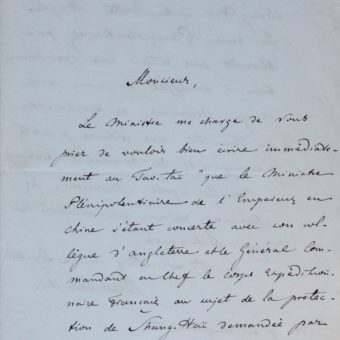 Monsieur,
Le Ministre me charge de vous
prier de vouloir bien écrire immédiate-
ment au Tao-taï "que le Ministre
Plénipotentiaire de l'Empereur en
Chine s'étant concerté avec son col-
lègue d'Angleterre et le Général Com-
mandant en Chef le corps expédition-
naire français au sujet de la protec-
tion de Shang-Haï demandée par